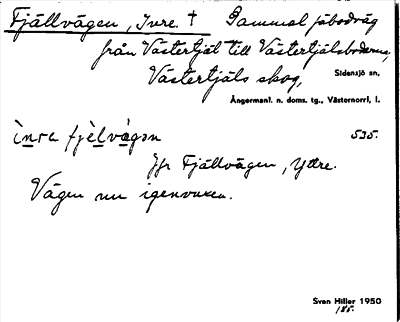 Fjällvägen, Inre. † Gammal fäbodväg
från Västertjäl till Västertjälsbodarna,
Västertjäls skog, Sidensjö sn,
Ångermanl. n. doms. tg., Västernorrl. l.
ìnra fjèlvägən 535.
Jfr Fjällvägen, Yttre.
Vägen nu igenvuxen.
Sven Hiller 1950
185.